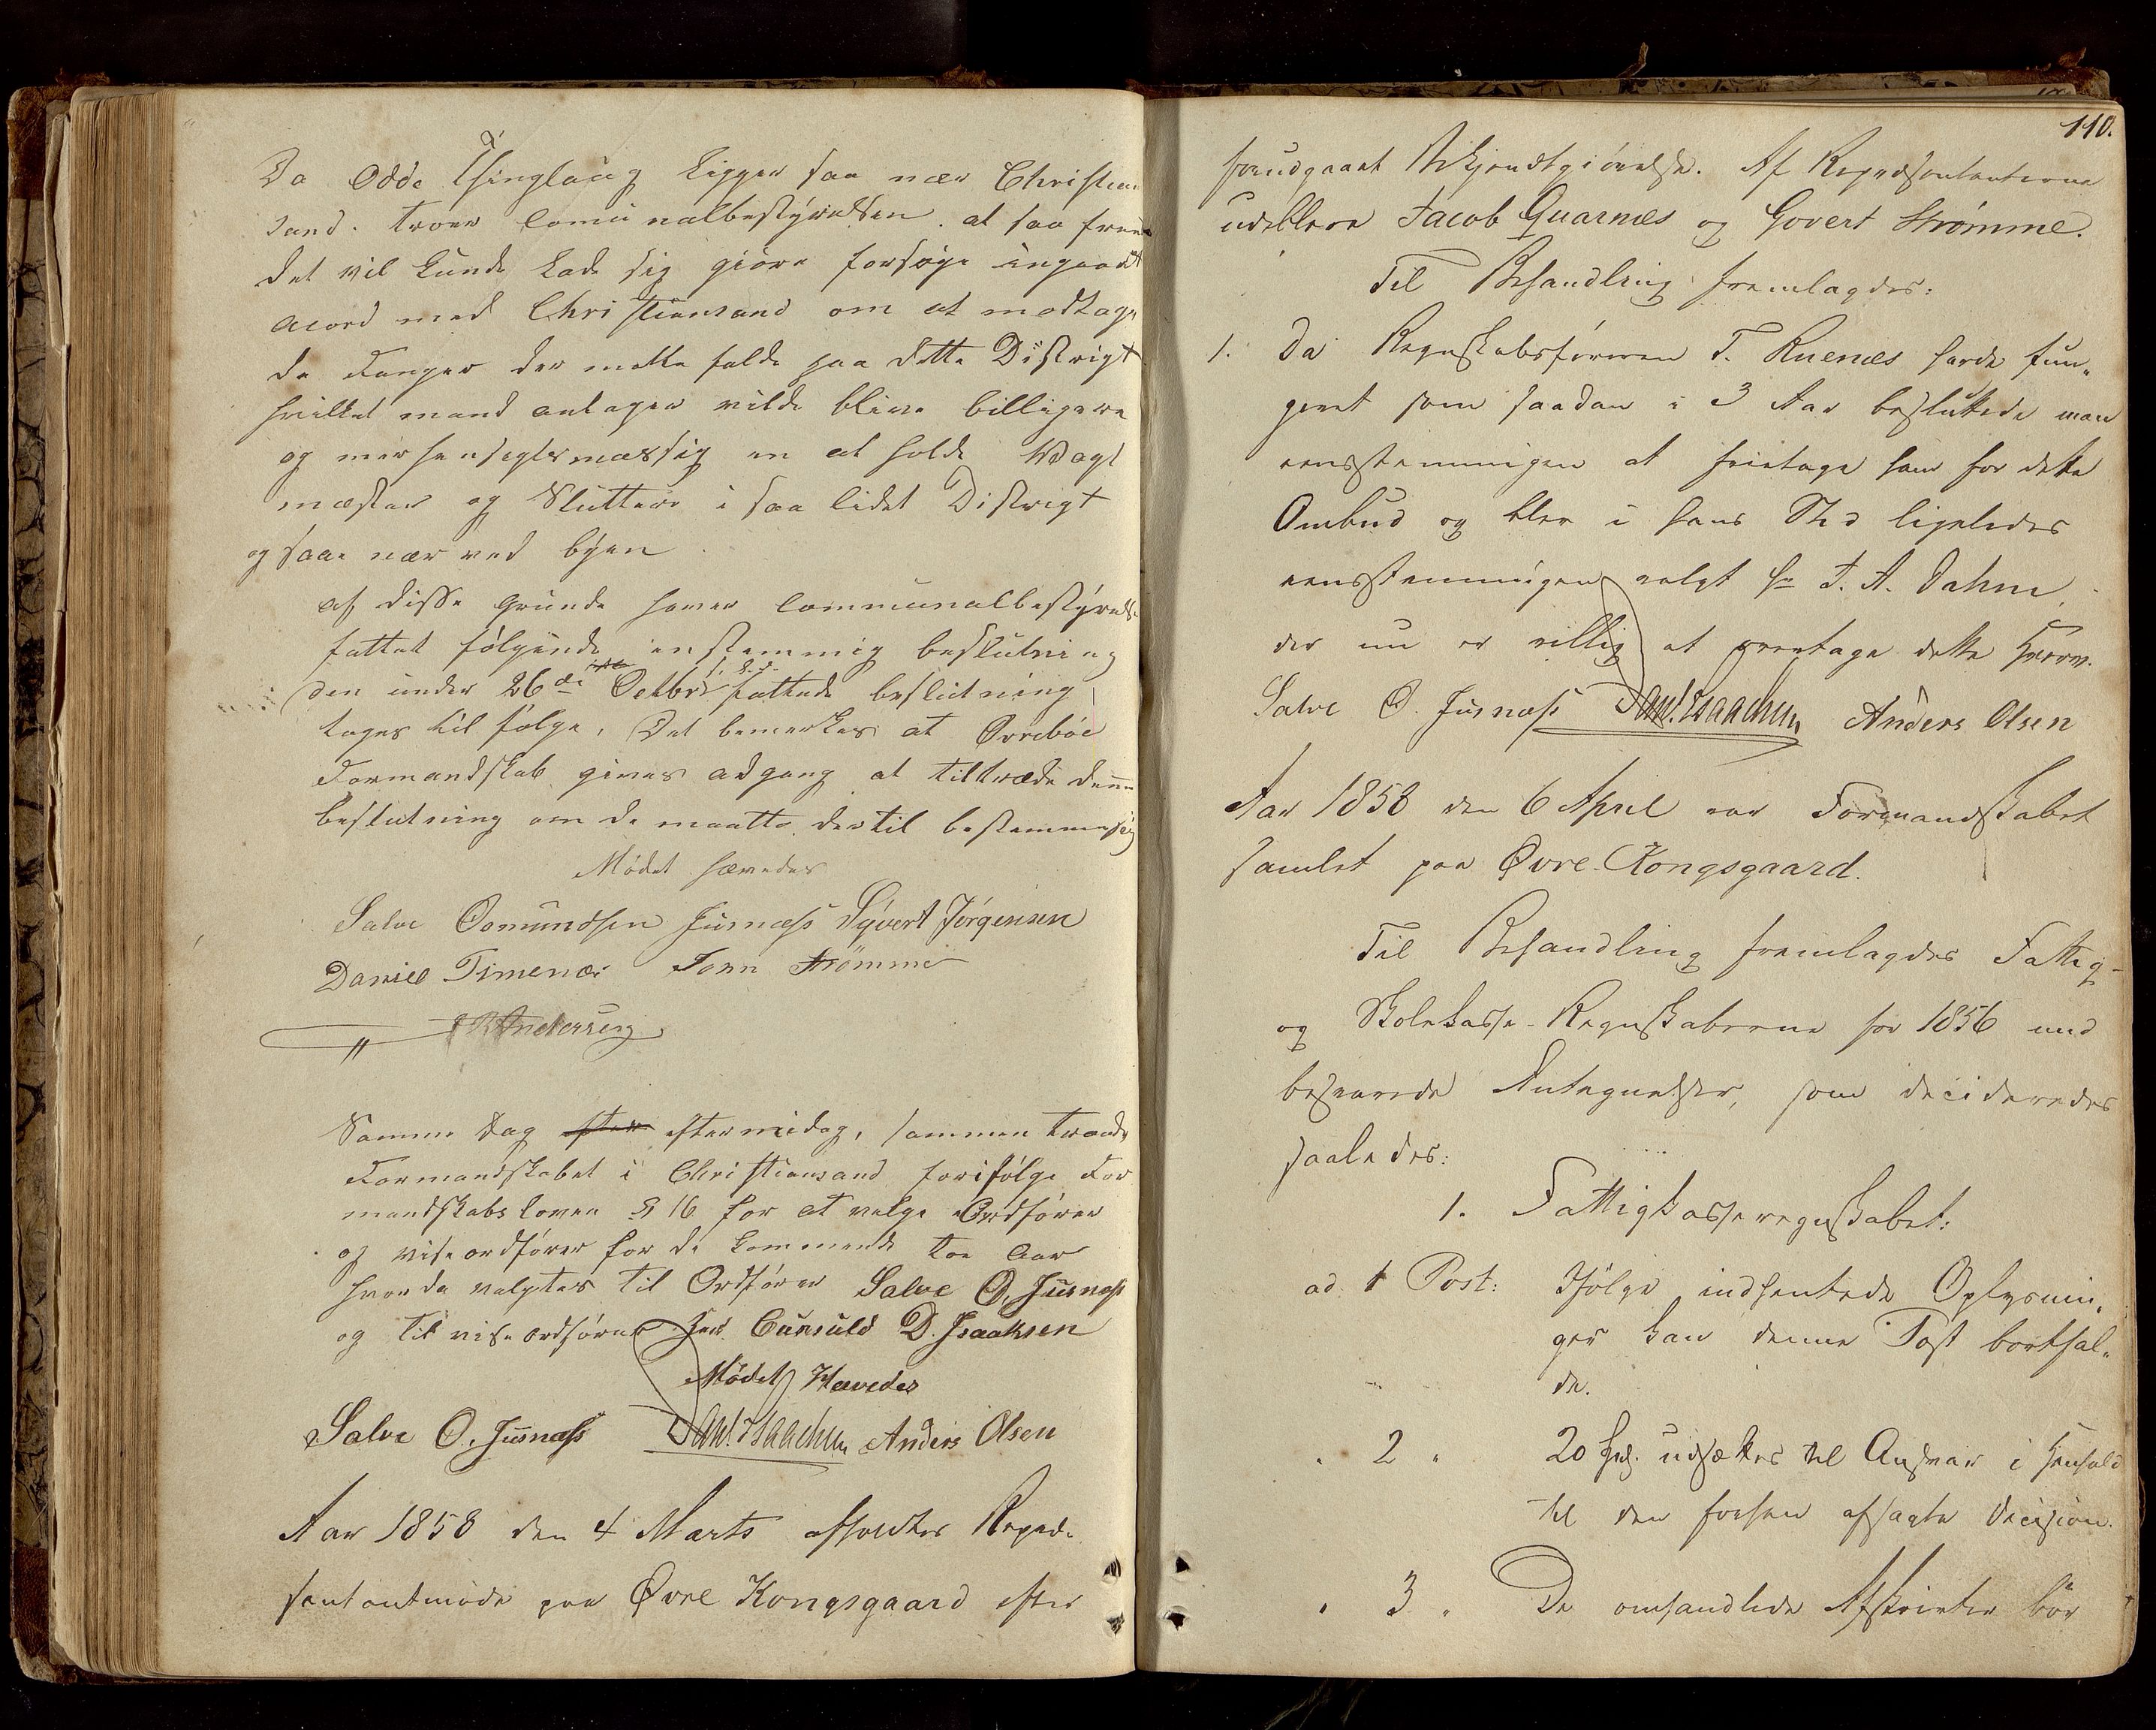 Da Odde Thinglaug ligger saa nær Christian
sand. troer comunalbestyrelsen. at saa frem
det vil kunde lade sig giøre forsøge ingaaet
acord med Christiansand om at modtage
de Fanger der motte falde paa dette Distrigt
hvilket mand antager vilde blive billigere
og mer hensegtsmæssig en at holde Wagt
mæster og Slutter i saa lidet Distrigt
og saa nær ved byen
af disse grunde haver communalbestyrelse
fattet følgende enstemmig beslutning
den under 26de Octbr f. A. fattede beslutning
tages til følge, Det bemerkes at Øvrebøe
Formandskab gives adgang at tiltræde denne
beslutning om de maatte dertil bestemme sig
Mødet hævedes
Salve Osmundsen Justnæss Sývert Jørgensen
Daniel Timenæs Tom Strømme
Andersen
Samme Dag efter eftermidag, sammen traade
Formandskabet i Christiansand for ifølge For
mandskabsloven § 16 for at velge Ordfører
og viseordfører for de kommende toe Aar
hvor da valgtes til Ordfører Salve O. Jusnæss
og til vise ordfører Her Cunsuld D. Isaaksen
Mødet Hævedes
Salve O. Jusnæss Danl. Isaachsen Anders Olsen
Aar 1858 den 4 Marts afholdtes Repræ-
sentantmøde paa Øvre Kongsgaard efter
110.
forudgaaet Bekjendtgiørelse. Af Repræsentanterne
udebleve Jacob Quarnes og Govert Strømme.
Til Behandling fremlagdes:
1. Da Regnskabsføreren T. Ruenæs havde fun-
geret som saadan i 3 Aar besluttede man
eensstemmigen at fritage ham for dette
Ombud og blev i hans Sted ligeledes
eensstemmigen valgt Hr T. A. Dahm,
der nu er villig at overtage dette Hverv.
Salve O. Jusnæss Danl. Isaachsen Anders Olsen
Aar 1858 den 6 April var Formandskabet
samlet paa Øvre Kongsgaard.
Til Behandling fremlagdes Fattig-
og Skolekasse-Regnskaberne for 1856 med
besvarede Antegnelser, som decideredes
saaledes:
1. Fattigkasseregnskabet:
ad 1 Post: Ifølge indhentede Oplysnin-
ger kan denne Post bortfal-
de.
" 2 " 20 udsættes til Ansvar i Henhold
til den forhen afsagte Decision.
" 3 " De omhandlede Afskrivter bør